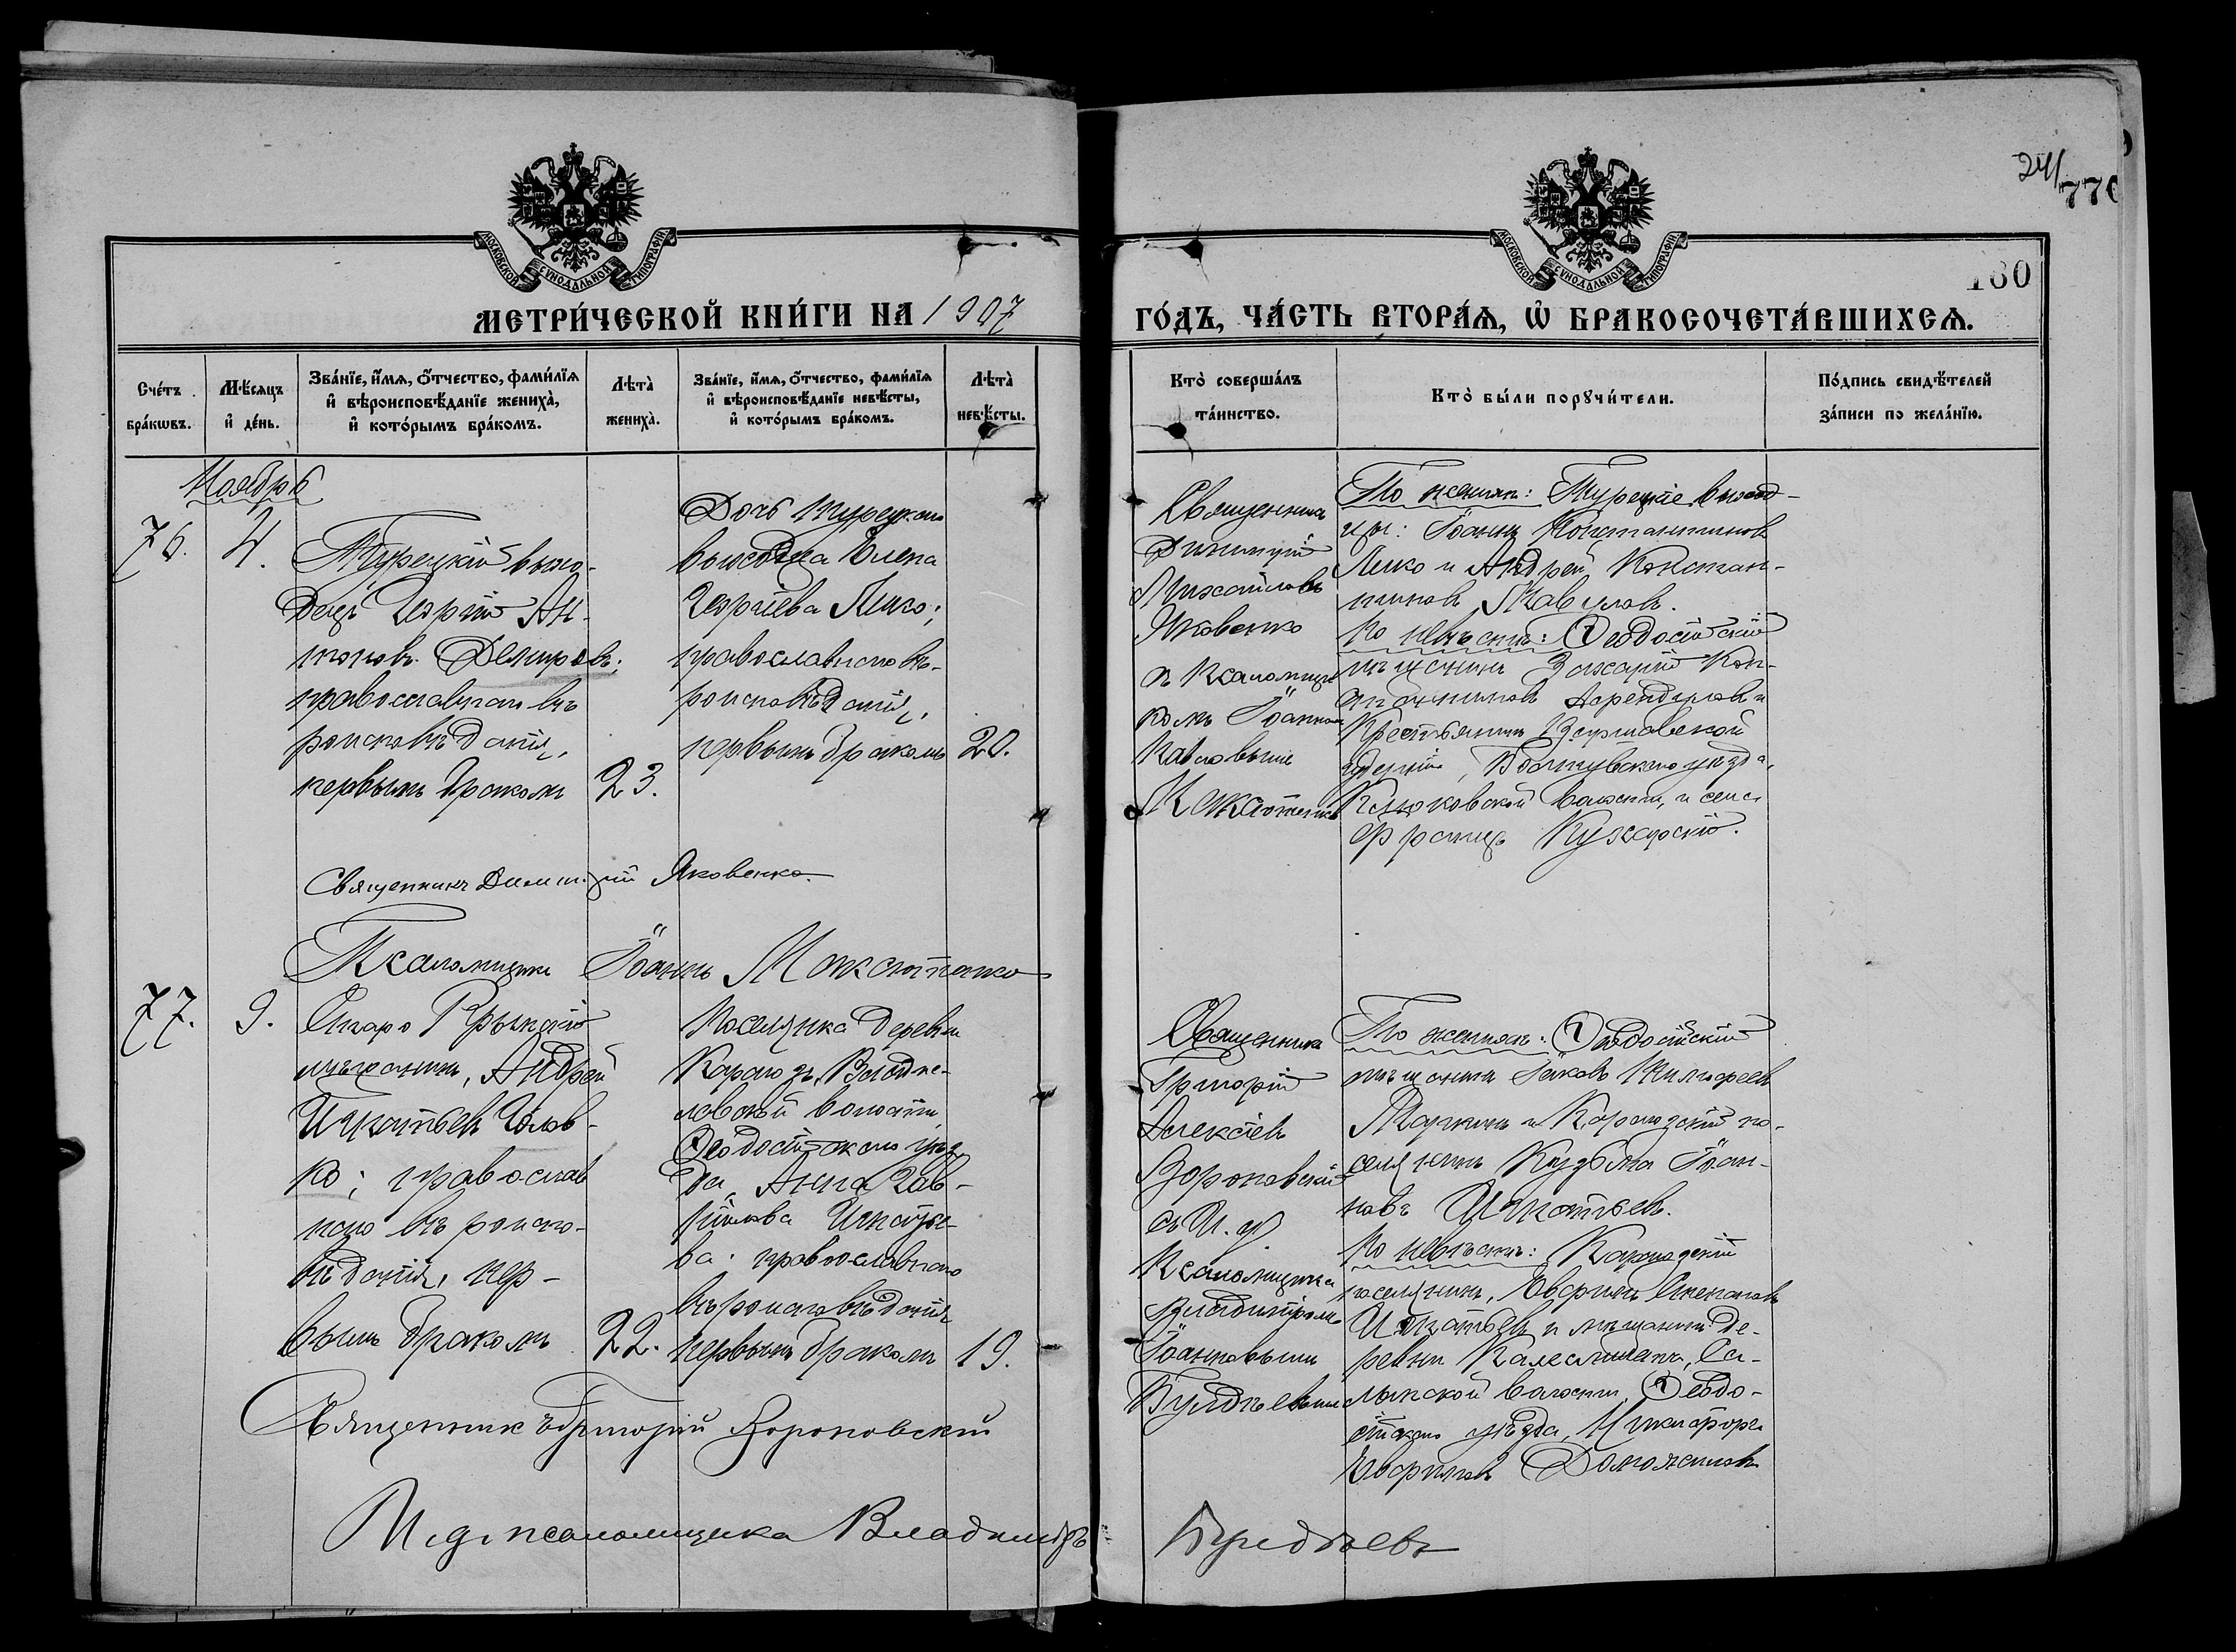 241
770
160
МОСКОВСКОЙ СУНОДАЛЬНОЙ ТИПОГРАФІИ
МОСКОВСКОЙ СУНОДАЛЬНОЙ ТИПОГРАФІИ
МЕТРИ́ЧЕСКОЙ КНИ́ГИ НА 1907
ГО́ДЪ, ЧА́СТЬ ВТОРА́Ѧ, Ѡ҆ БРАКОСОЧЕТА́ВШИХСѦ.
Сче́тъ бра́кѡвъ.
Мѣ́сяцъ и҆ де́нь.
Зва́нїе, и҆́мѧ, ѻ҆́тчество, фами́лїѧ
и҆ вѣроисповѣ́данїе жениха̀,
и҆ кото́рымъ бра́комъ.
Лѣта̀
жениха̀.
Зва́нїе, и҆́мѧ, ѻ҆́тчество, фами́лїѧ
и҆ вѣроисповѣ́данїе невѣ́сты,
и҆ кото́рымъ бра́комъ.
Лѣта̀
невѣ́сты.
Кто̀ соверша́лъ
та́инство.
Кто̀ бы́ли порꙋчи́тели.
По́дпись свидѣ́телей
за́писи по жела́нїю.
Ноябрь
76.
4.
Турецкій выхо-
децъ Георгій Ан-
тоновъ Демировъ;
православнаго вѣ-
роисповѣданія,
первымъ бракомъ
23.
Дочь турецкаго
выходца Елена
Георгіева Лико;
православнаго вѣ-
роисповѣданія,
первымъ бракомъ
20.
Священникъ
Димитрій
Михайловъ
Яковенко
съ псаломщи-
комъ Іоанномъ
Павловымъ
По женихѣ: Турецкіе выход-
цы: Іоаннъ Константиновъ
Лико и Андрей Констан-
тиновъ
По невѣстѣ: Ѳеодосійскій
мѣщанинъ Захарій Кон-
стантиновъ и
Крестьянинъ
губерніи, уѣзда,
волости, и села
Францъ
Священникъ Димитрій Яковенко.
Псаломщикъ Іоаннъ
77.
9.
Старо Крымскій
мѣщанинъ, Андрей
Игнатьевъ Голов-
ко; православ
наго вѣроиспо-
вѣданія, пер-
вымъ бракомъ
22.
Поселянка деревни
Карагозъ, Владис-
лавской волости,
Ѳеодосійскаго уѣз-
да, Анна Гав-
ріилова Игнатье-
ва: православнаго
вѣроисповѣданія
первымъ бракомъ
19.
Священникъ
Григорій
Алексѣевъ
съ И. д.
псаломщика
Владиміромъ
Іоанновымъ
По женихѣ: Ѳеодосійскій
мѣщанинъ Іаковъ
и Карагозскій по-
селянинъ Кузьма Іоан-
новъ Игнатьевъ.
По невѣстѣ: Карагозскій
поселянинъ, Стефановъ
Игнатьевъ и мѣщанинъ де-
ревни
волости, Ѳеодо-
сійскаго уѣзда, Никифоръ
Священникъ Григорій
И. д. псаломщика Владиміръ